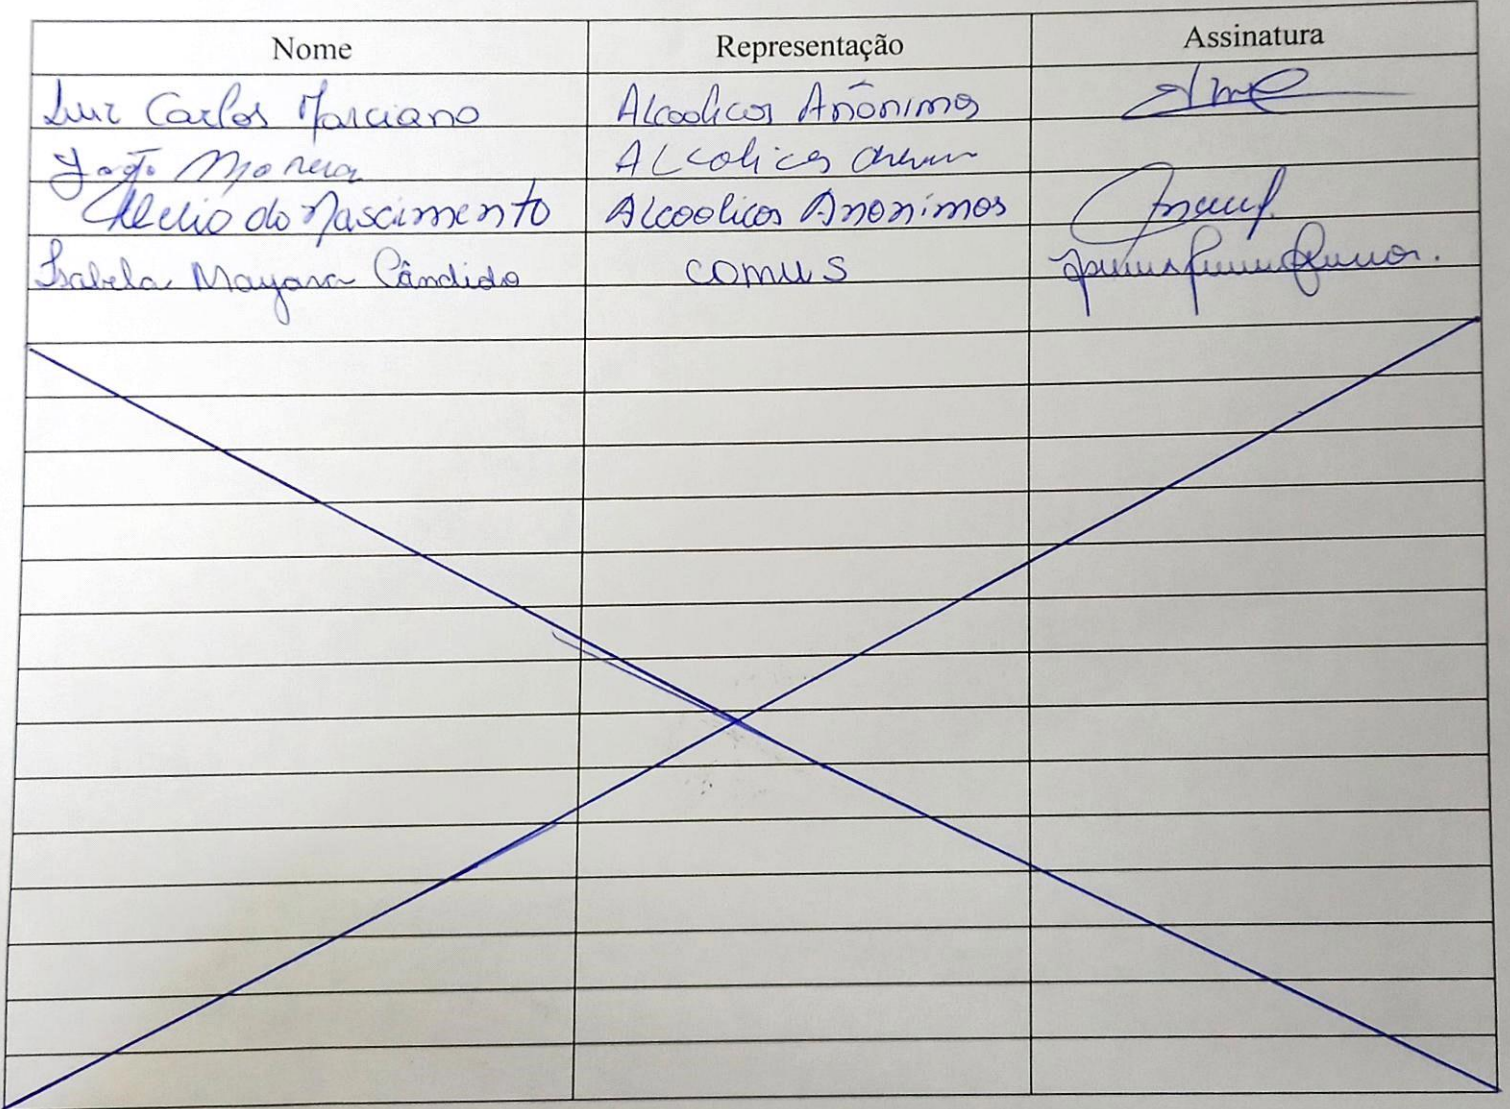 Nome Representação Assinatura
Luiz Carlos Marciano Alcoolicos Anônimos
João Alcolicos
do Nascimento Alcoolicos Anonimos
Isabela Mayara Cândido comus